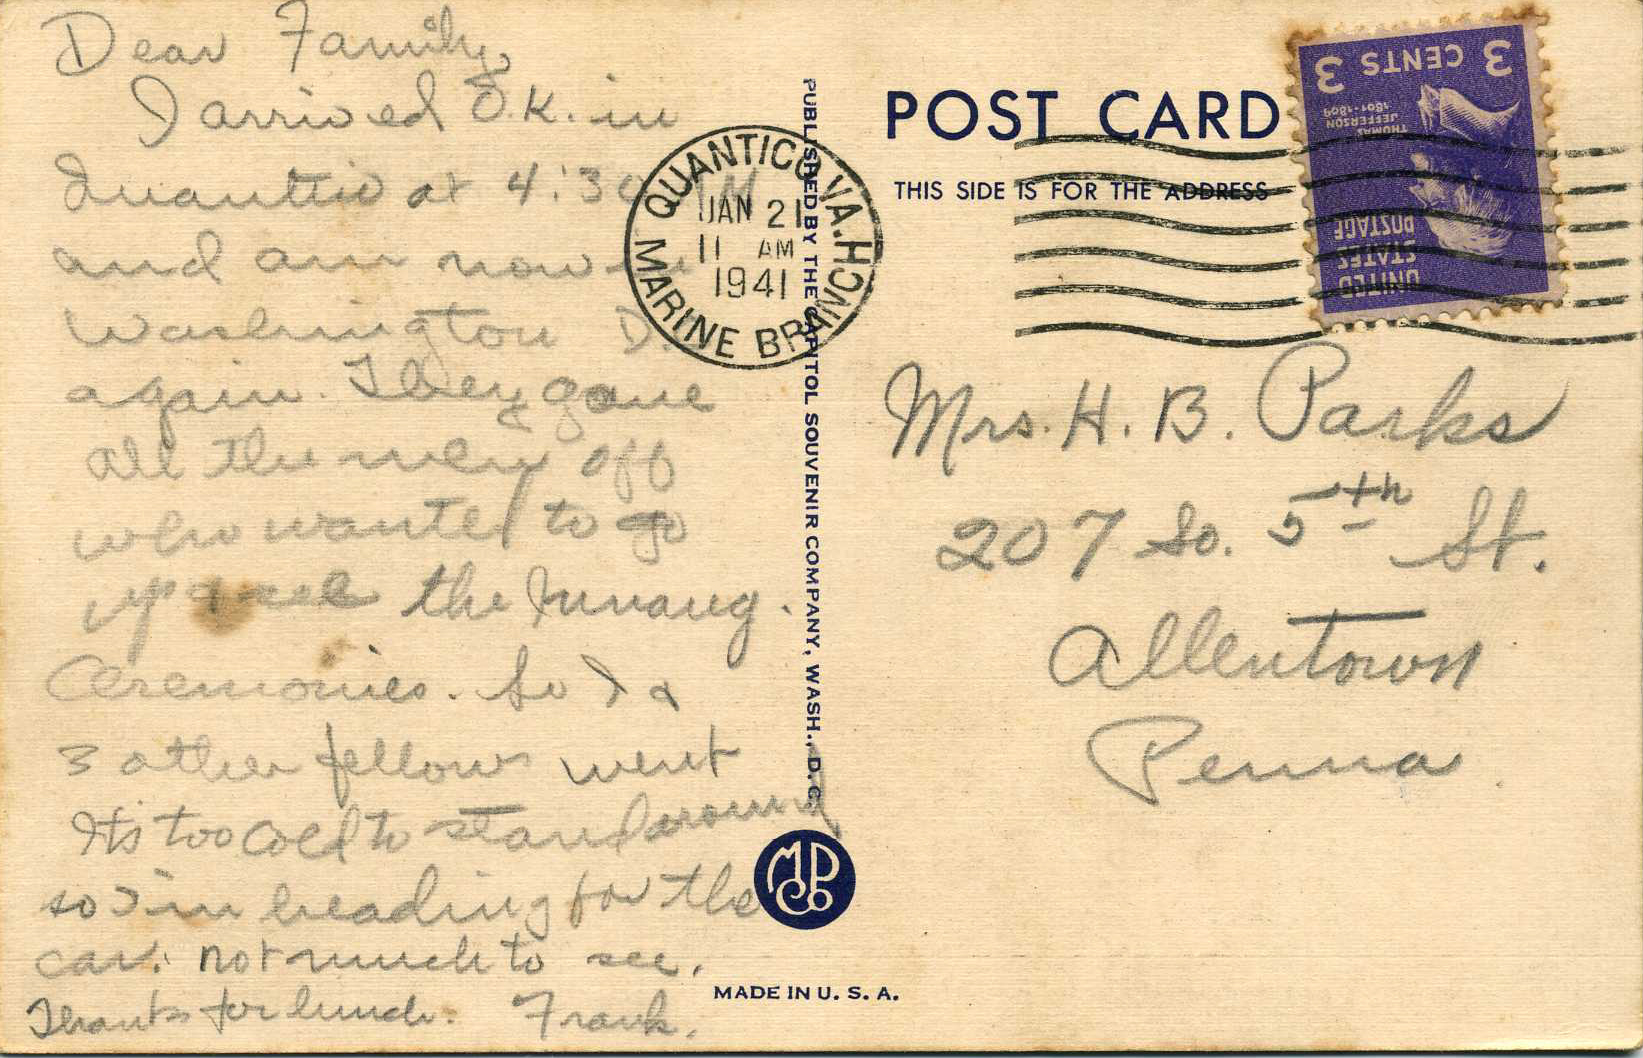 Dear Family,
I arrived O.K. in
Quantico at 4:30 AM
and am now in
Washington D.
again. They gave
all the men off
who wanted to go
up & see the Innaug.
Ceremonies. So I &
3 other fellows went
Its too cold to stand around
so I'm heading for the
car. not much to see.
Thanks for lunch. Frank.
PUBLISHED BY THE CAPITOL SOUVENIR COMPANY, WASH., D. C.
QUANTICO, VA.
JAN 21
11 AM
1941
MARINE BRANCH
POST CARD
THIS SIDE IS FOR THE ADDRESS
3 CENTS 3
THOMAS
JEFFERSON
1801-1809
UNITED
STATES
POSTAGE
Mrs. H. B. Parks
207 So. 5th St.
Allentown
Penna.
MADE IN U. S. A.